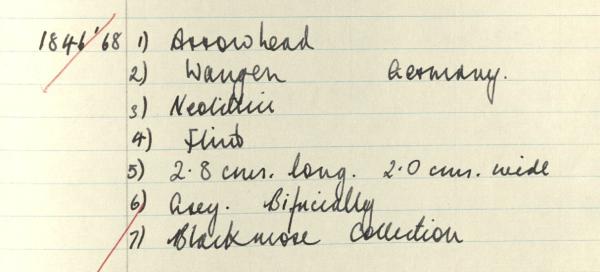 1846'68 1) Arrowhead
2) Wangen Germany.
3) Neolithic
4) Flint
5) 2.8 cms. long. 2.0 cms. wide
6) Grey. Bifacially
7) Blackmore Collection